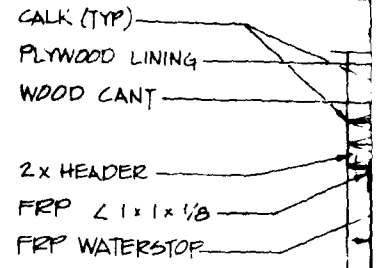 CALK (TYP)
PLYWOOD LINING
WOOD CANT
2x HEADER
FRP ∠ 1 x 1 x 1/8
FRP WATERSTOP